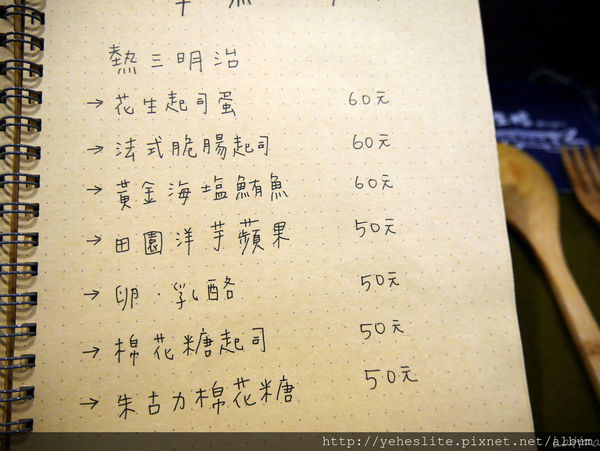 熱三明治
→ 花生起司蛋 60元
→ 法式脆腸起司 60元
→ 黃金海塩鮪魚 60元
→ 田園洋芋蘋果 50元
→ 卵．乳酪 50元
→ 棉花糖起司 50元
→ 朱古力棉花糖 50元
http://yeheslite.pixnet.net/album